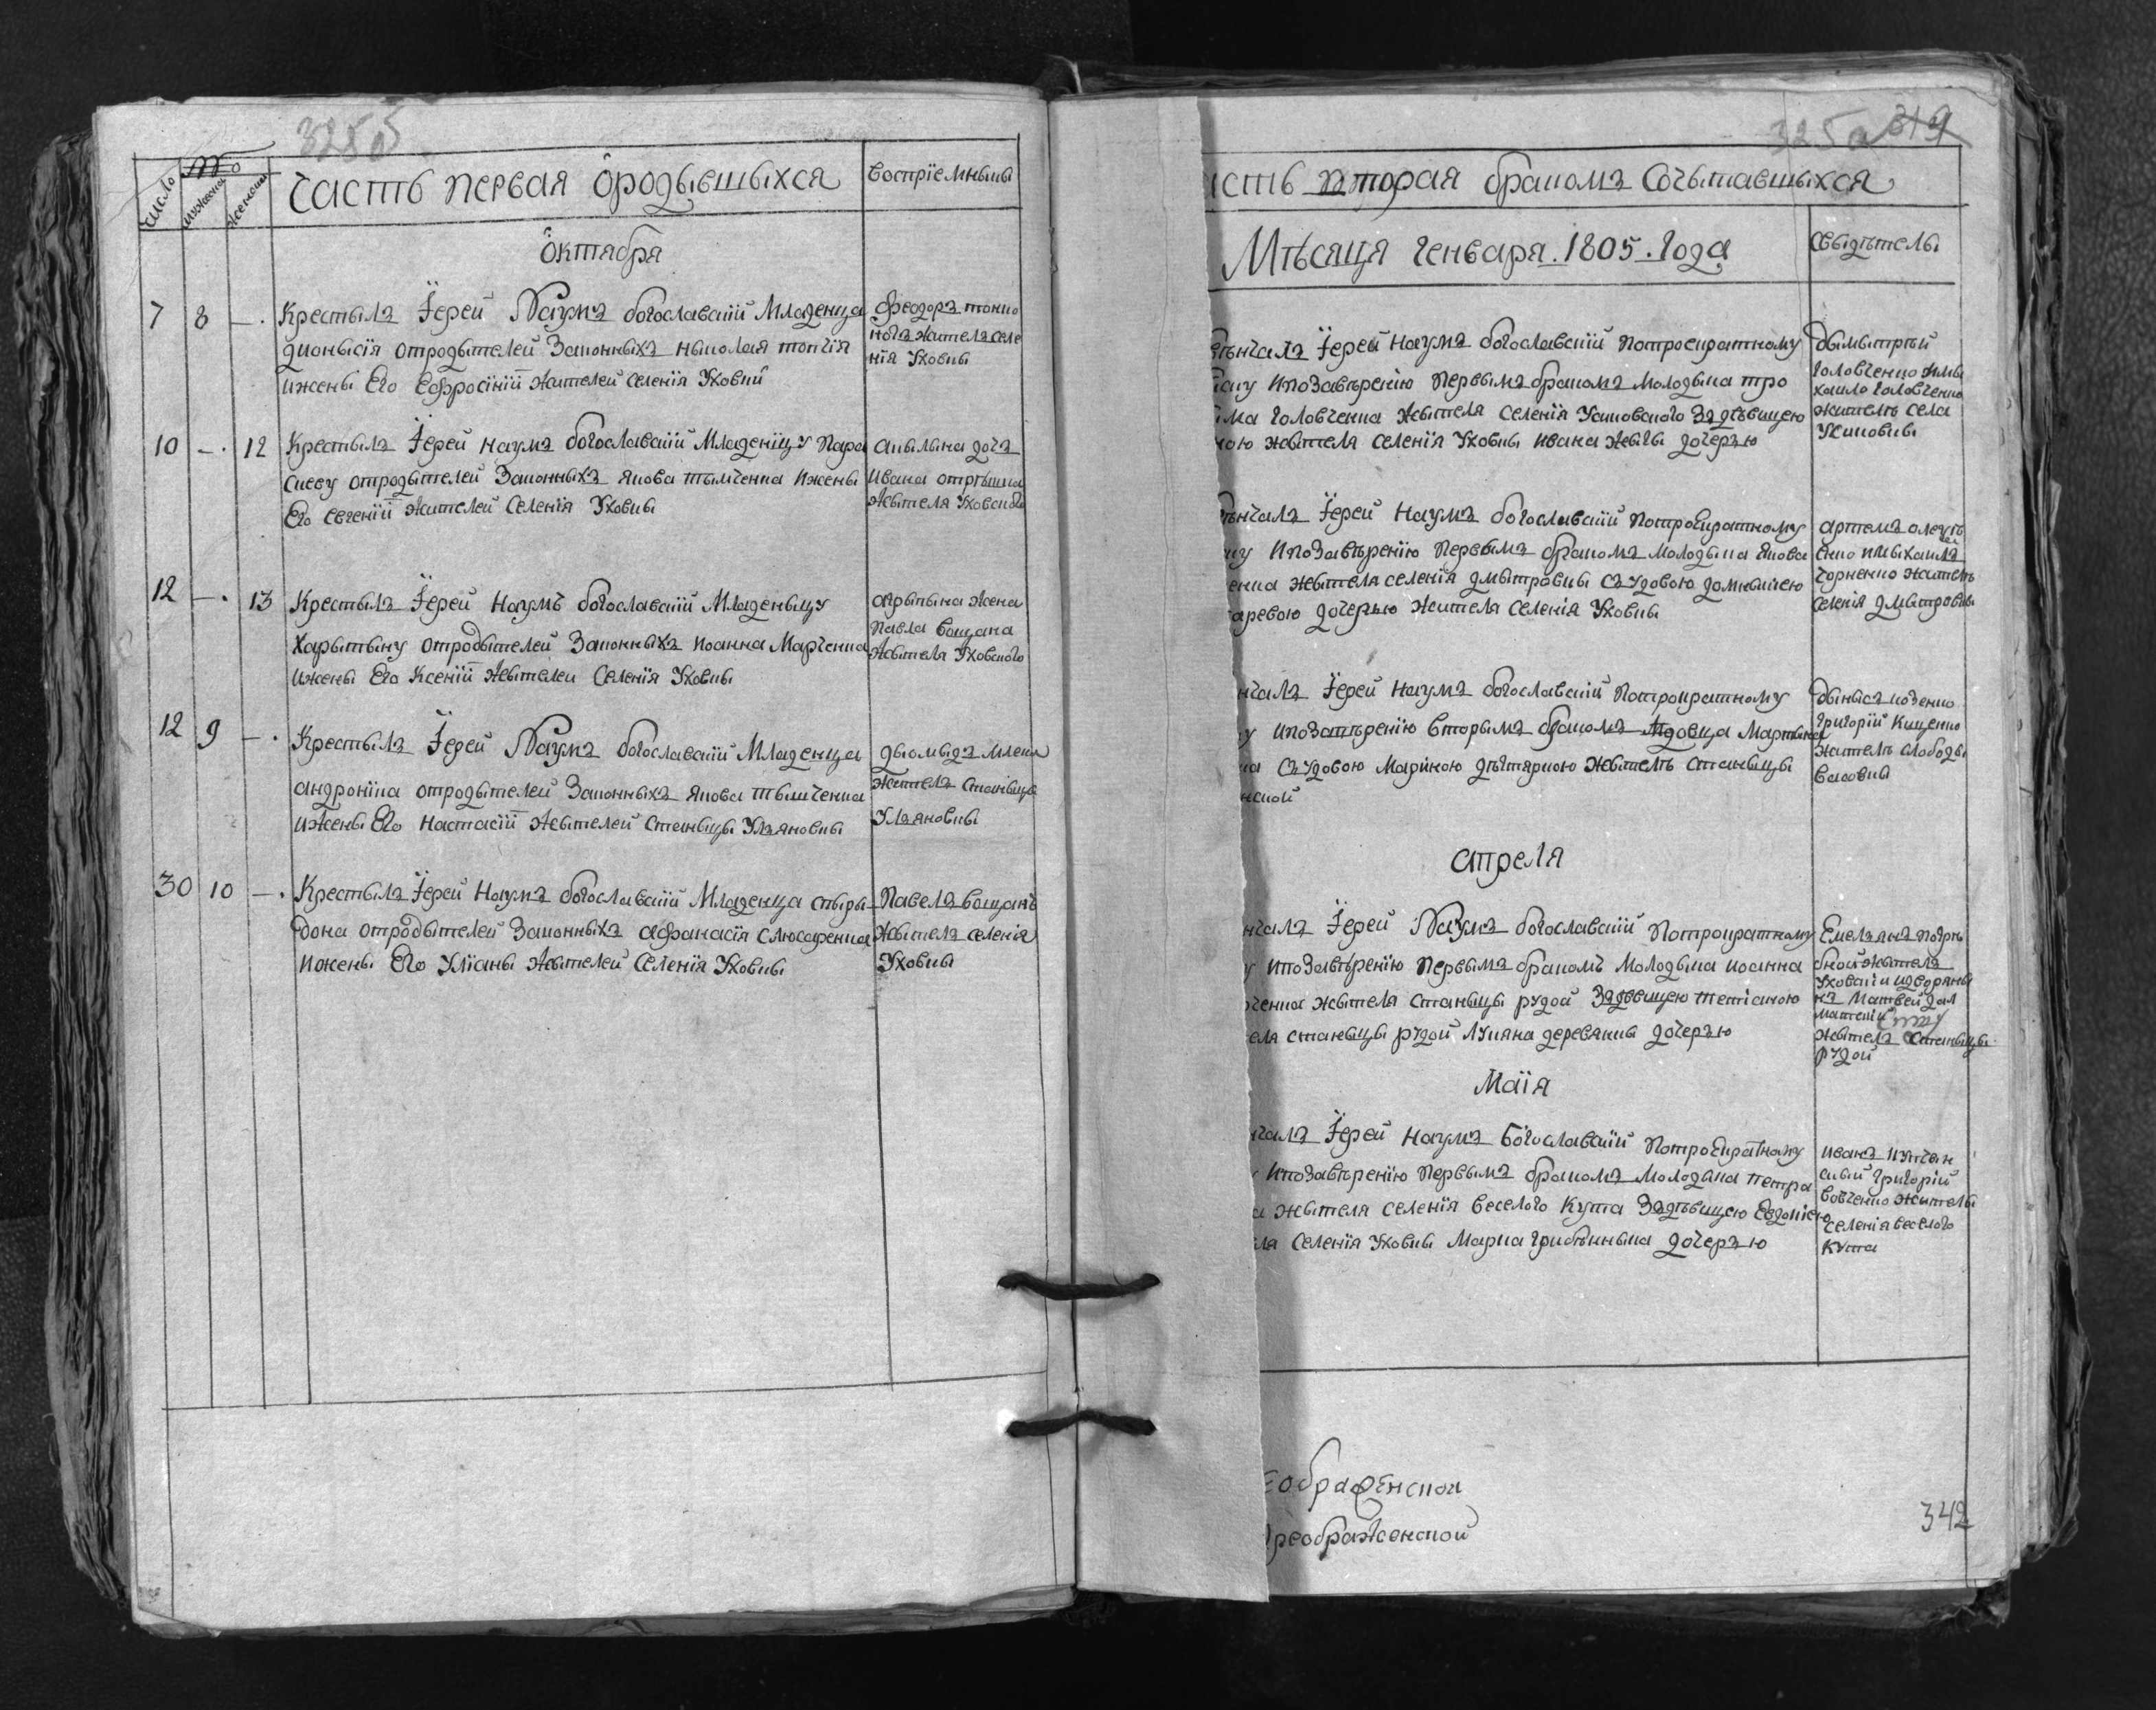 325б
Число
№
мужеска
женска
Часть первая ородывшыхся
воспріемныки
Октября
7 8 —. Крестылъ Іерей Наумъ богославскій Младенца
дионысія отродытелей Законныхъ ныколая
ижены Его Ефросініи жителей селенія Уховки
феодоръ
жителъ селе
нія Уховкы
10 —. 12 Крестылъ Іерей наумъ богославскій Младеніцу пара
скеву отродытелей Законныхъ якова тымченка ижены
Его Евгеніи жителей Селенія Уховкы
акылына дочъ
ивана
жытеля Уховского
12 —. 13 Крестылъ Іерей Наумъ богославскій Младеныцу
Харытыну отродытелей Законныхъ иоанна Марченка
ижены Его Ксеніи жытелеи Селенія Уховкы
агрыпына жена
павла вощана
жытеля Уховского
12 9 —. Крестылъ Іерей Наумъ богославскій Младенца
андроніка отродытелей Законныхъ якова тымченка
ижены Его настасіи жытелей станыцы Улъяновкы
дыомыдъ
жителъ станыцы
Улъяновкы
30 10 —. Крестылъ Іерей Наумъ богославскій Младенца спыры
дона отродытелей Законныхъ афанасія слюсаренка
ижены Его Уліаны жытелей Селенія Уховкы
Павелъ вощанъ
жытелъ селенія
Уховкы
325а 319
асть вторая бракомъ Сочытавшыхся
Мѣсяця Генваря. 1805. Года
Свыдѣтелы
ѣнчалъ Іерей наумъ богославскій потроекратному
ипозавѣренію первымъ бракомъ молодыка тро
има головченка жытеля селенія Усиовского Здѣвицею
ною жытеля селенія Уховкы ивана дочеръю
дымытрый
головченко имы
хаило головченко
жителѣ села
ѣнчалъ Іерей Наумъ богославскій потроекратному
у ипозавѣренію первымъ бракомъ молодыка якова
енка жытеля селенія дмытровкы съудовою
аревою дочерью жителя селенія Уховкы
артемъ
енко имыхаилъ
чорненко жителѣ
селенія дмытровкы
нчалъ Іерей Наумъ богославскій потрократному
у ипозавѣренію вторымъ бракомъ вдовца Мартына
ка съудовою Мариною жытелѣ станыцы
нской
дынысъ
григорій Куценко
жителѣ слободы
апреля
нчалъ Іерей Наумъ богославскій потрократному
у ипозавѣренію первымъ бракомъ молодыка иоанна
ченка жытеля станыцы рудой Здѣвицею тетіаною
еля станыцы рудой лукяна деревянкы дочеръю
Емелянъ
жытелъ
Матвей
жытелъ станыцы
рудой
Маія
нчалъ Іерей Наумъ Богославскій потроекратному
у ипозавѣренію первымъ бракомъ молодыка петра
а жытеля селенія веселого Кута Здѣвицею Евдокіею
ля Селенія Уховкы Марка дочеръю
иванъ
григорій
вовченко жителы
селенія веселого
кута
еображенской
преображенской
342